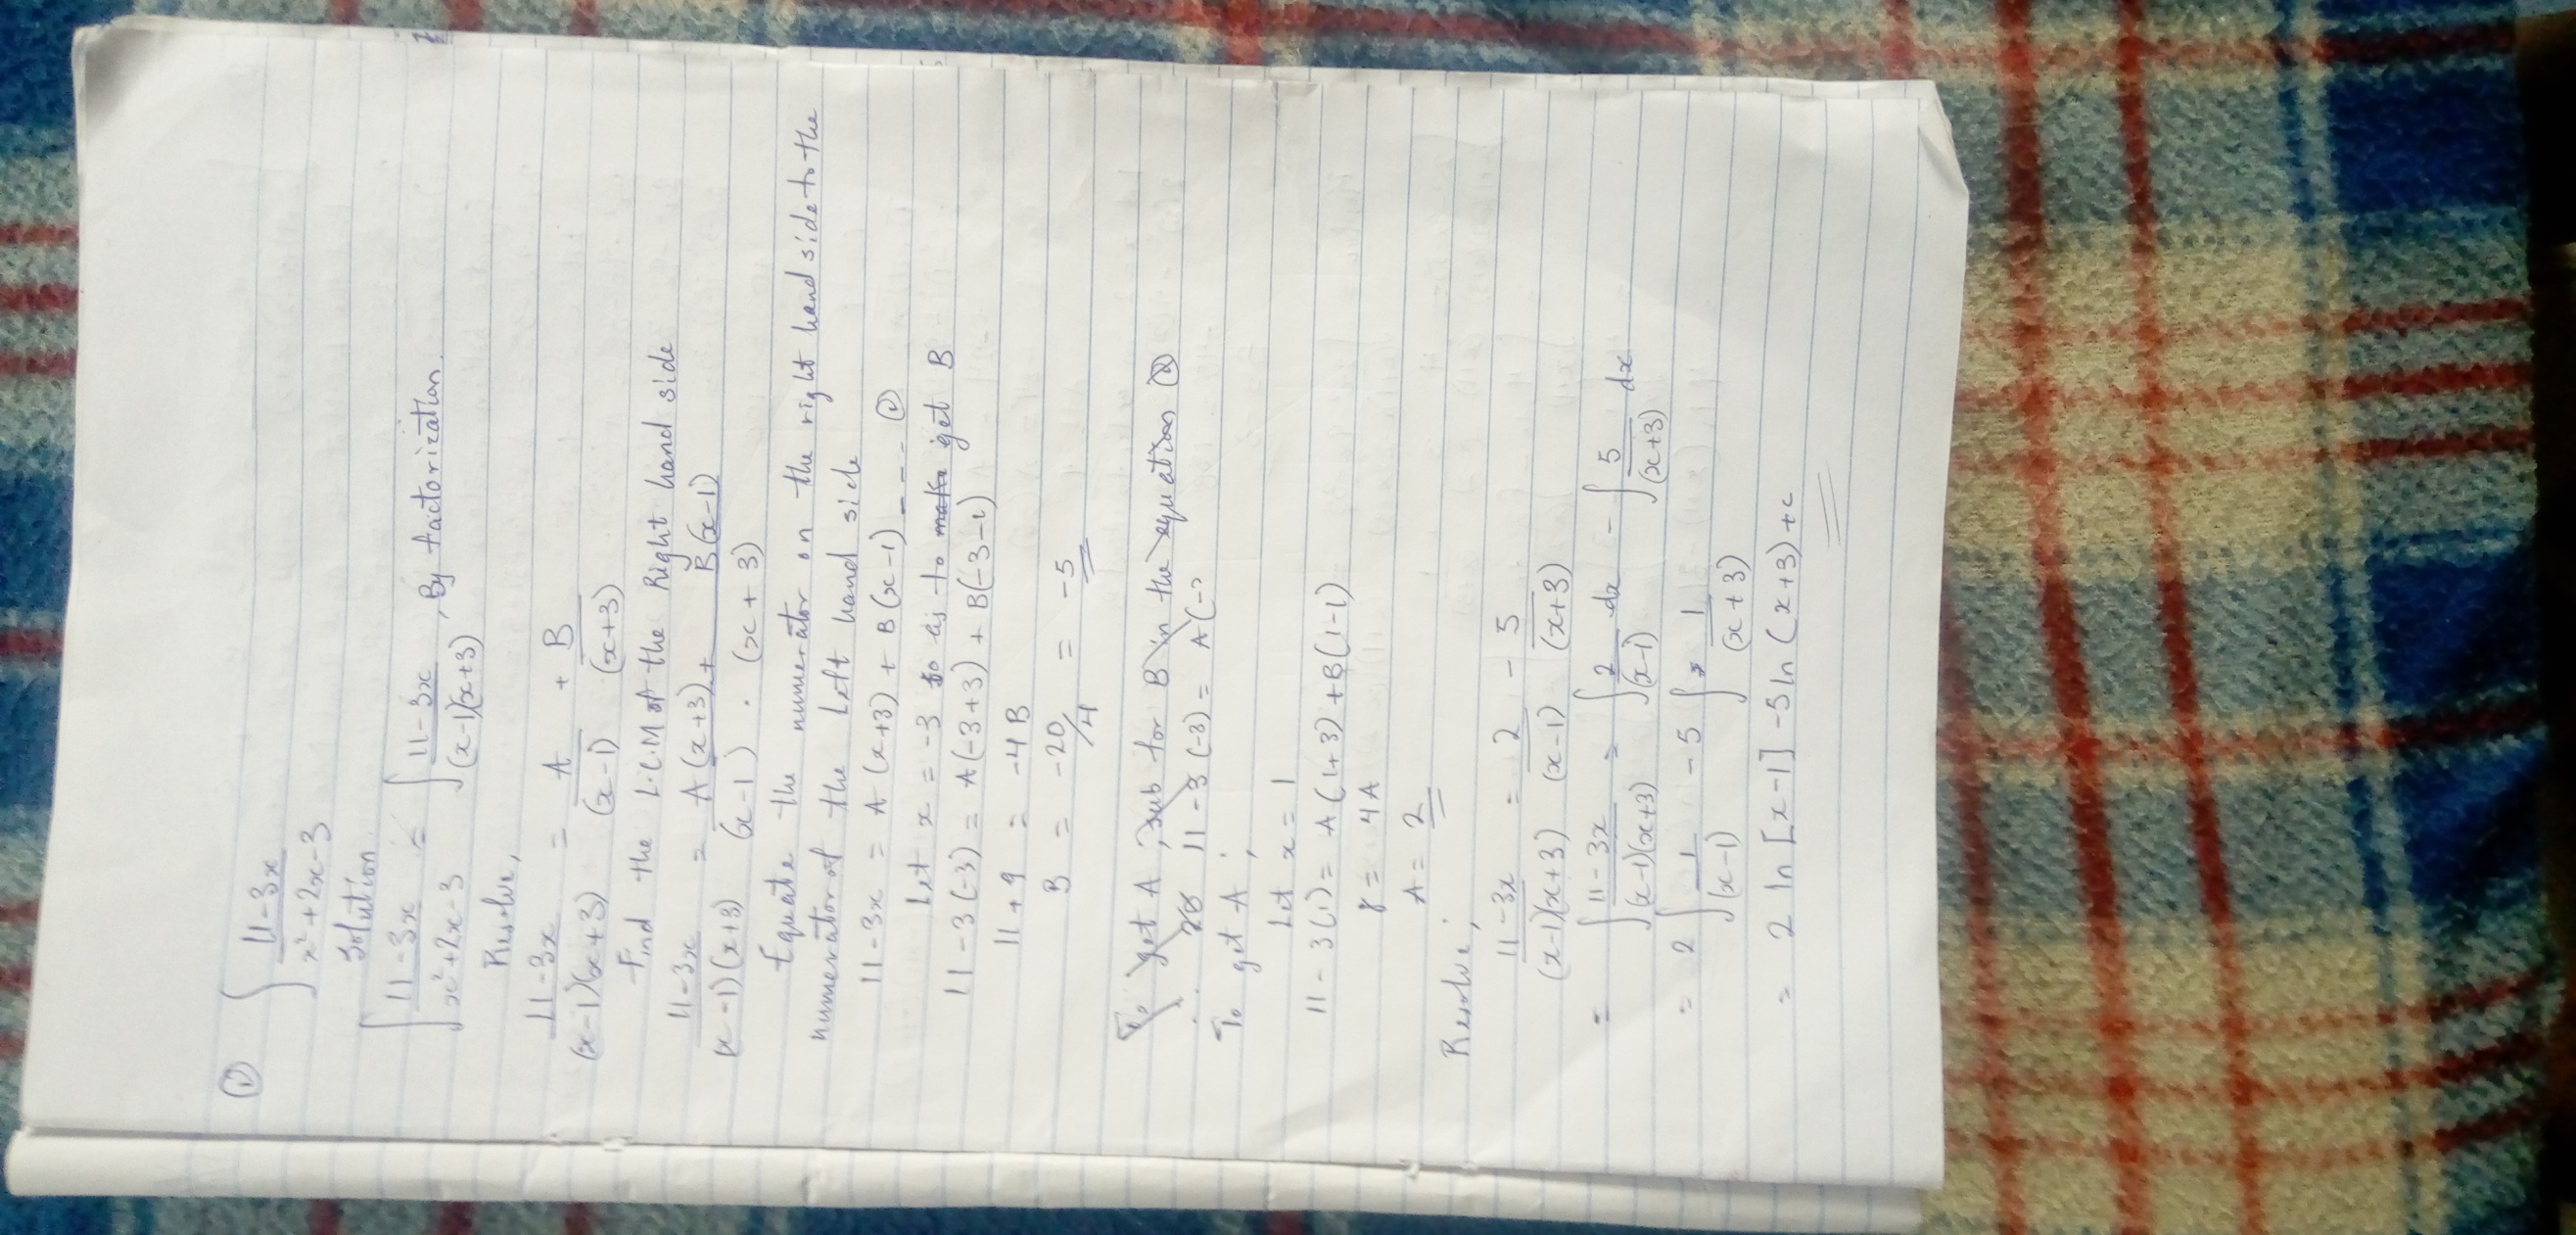 ① ∫ 11-3x / x²+2x-3
Solution
∫ 11-3x / x²+2x-3 = ∫ 11-3x / (x-1)(x+3) , By factorization.
Resolve,
11-3x / (x-1)(x+3) = A / (x-1) + B / (x+3)
Find the L.C.M of the Right hand side
11-3x / (x-1)(x+3) = A(x+3) + B(x-1) / (x-1) . (x+3)
Equate the numerator on the right hand side to the
numerator of the Left hand side
11-3x = A(x+3) + B(x-1) - - - ①
Let x = -3 so as to get B
11-3(-3) = A(-3+3) + B(-3-1)
11+9 = -4B
B = -20/4 = -5
To get A, sub for B in the equation ②
11-3(-3) = A(-3
To get A,
Let x = 1
11-3(1) = A(1+3) + B(1-1)
8 = 4A
A = 2
Resolve,
11-3x / (x-1)(x+3) = 2 / (x-1) - 5 / (x+3)
= ∫ 11-3x / (x-1)(x+3) = ∫ 2 / (x-1) dx - ∫ 5 / (x+3) dx
= 2 ∫ 1 / (x-1) - 5 ∫ 1 / (x+3)
= 2 ln [x-1] - 5 ln (x+3) + c